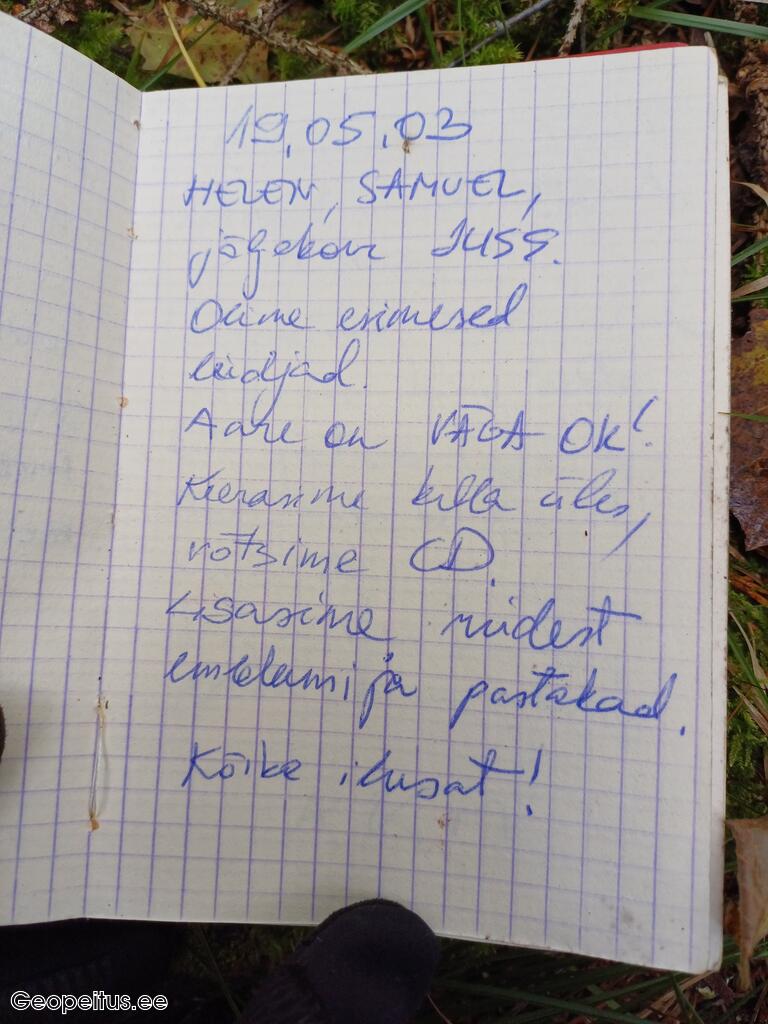 19.05.03
HELEN, SAMUEL,
jäljekoer JUSS.
Olime esimesed
leidjad.
Aare on VÄGA OK!
Keerasime kella üles,
võtsime CD.
Lisasime riidest
embleemi ja pastakad.
Kõike ilusat!
Geopeitus.ee